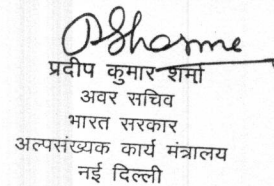 PSharma
प्रदीप कुमार शर्मा
अवर सचिव
भारत सरकार
अल्पसंख्यक कार्य मंत्रालय
नई दिल्ली